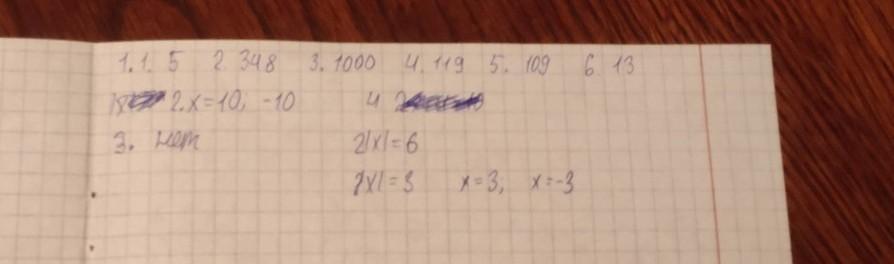 1. 1. 5 2. 348 3. 1000 4. 119 5. 109 6. 13
2. x=10; -10 4
3. нет 2|x|=6
|x|=3 x=3; x=-3